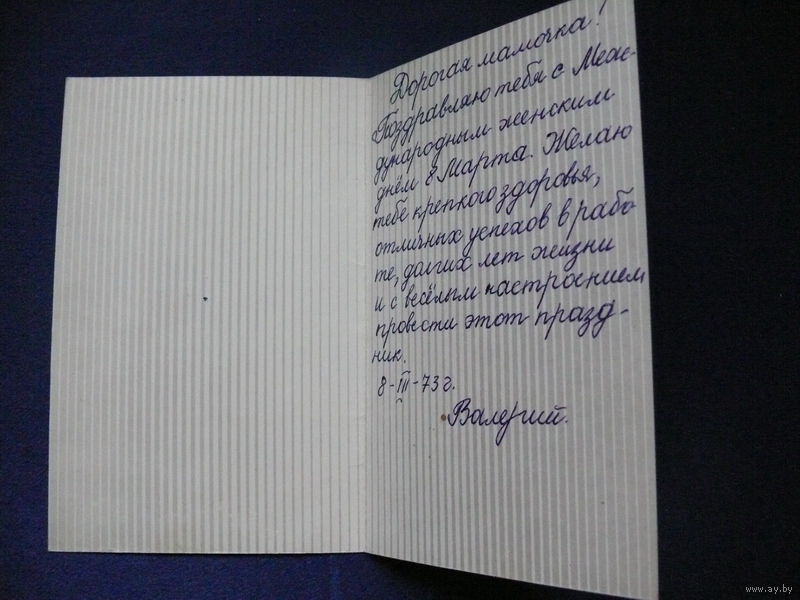 Дорогая мамочка!
Поздравляю тебя с Меж-
дународным женским
днём 8 Марта. Желаю
тебе крепкого здоровья,
отличных успехов в рабо-
те, долгих лет жизни
и с весёлым настроением
провести этот празд-
ник.
8-III-73г.
Валерий.
www.ay.by